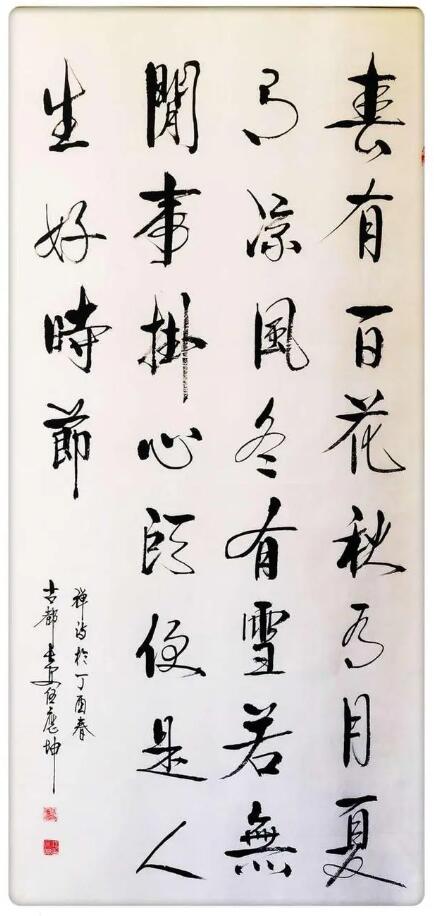 春有百花秋有月夏
有涼風冬有雪若無
閒事掛心頭便是人
生好時節
禅诗於丁酉春
古都安伍應坤